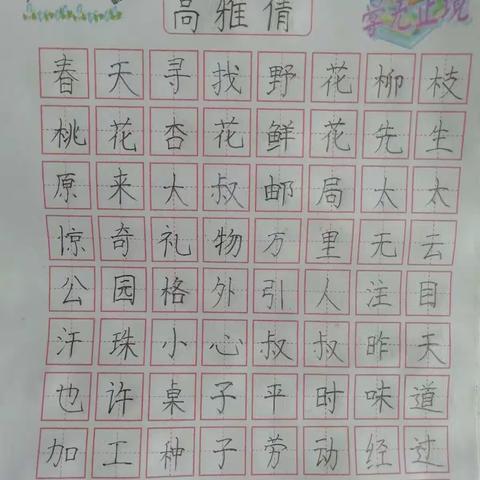 高雅倩
春天寻找野花柳枝
桃花杏花鲜花先生
原来大叔邮局太太
惊奇礼物万里无云
公园格外引人注目
汗珠小心叔叔昨天
也许桌子平时味道
加工种子劳动经过